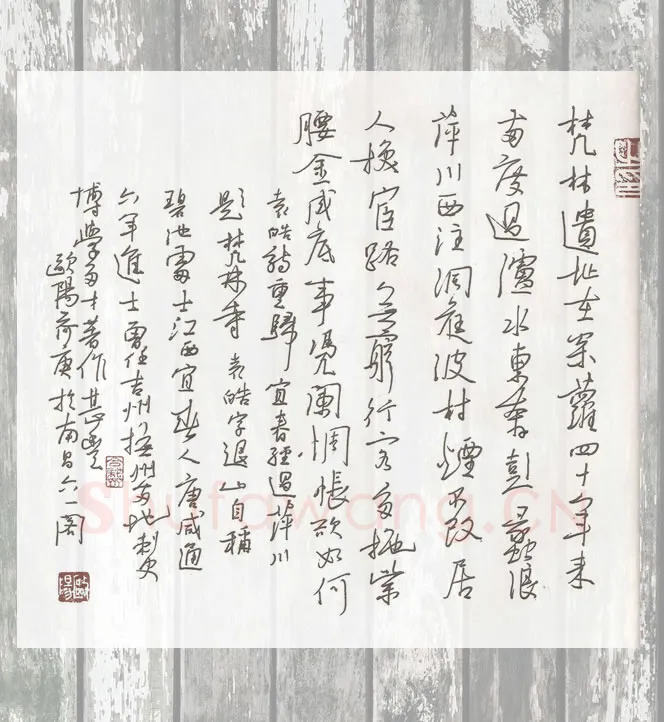 梵林遺址在枩蘿四十年来
两度過瀘水東奔彭蠡浪
萍川西注洞庭波村煙不改居
人換官路無窮行客多拖紫
腰金成底事凭闌惆悵欲如何
袁皓詩重歸宜春經過萍川
題梵林寺 袁皓字退山自稱
碧池處士江西宜春人唐咸通
六年進士曾任吉州撫州等地刺史
博學多才著作甚豐
歐陽荷庚於南昌六一阁
Shufawang.CN